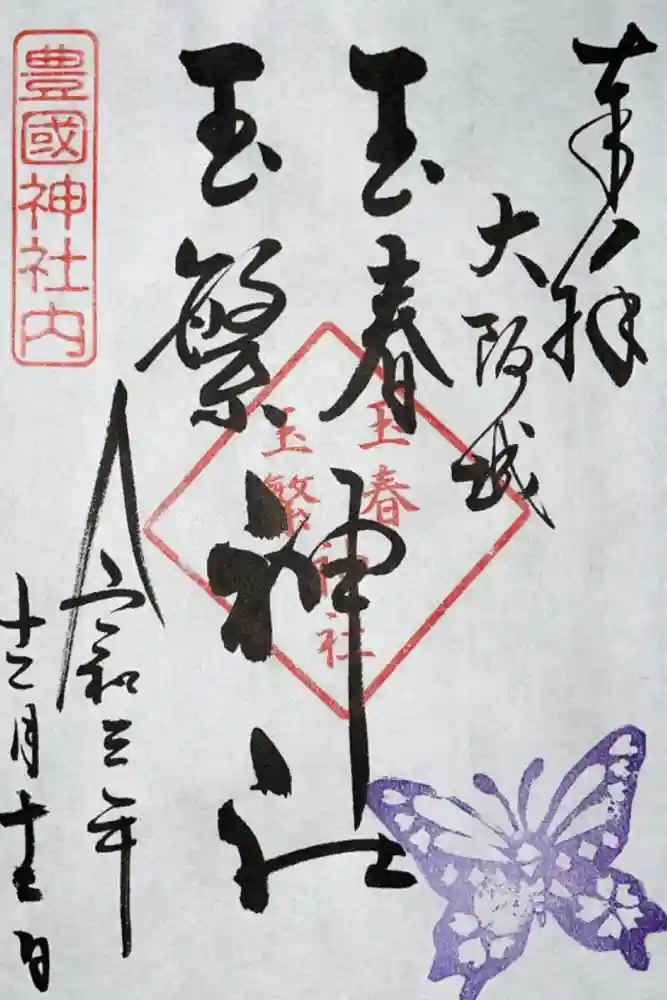 奉拝
大阪城
玉春
玉繁
神社
令和三年
十二月十二日
豊國神社内
玉春
玉繁
神社